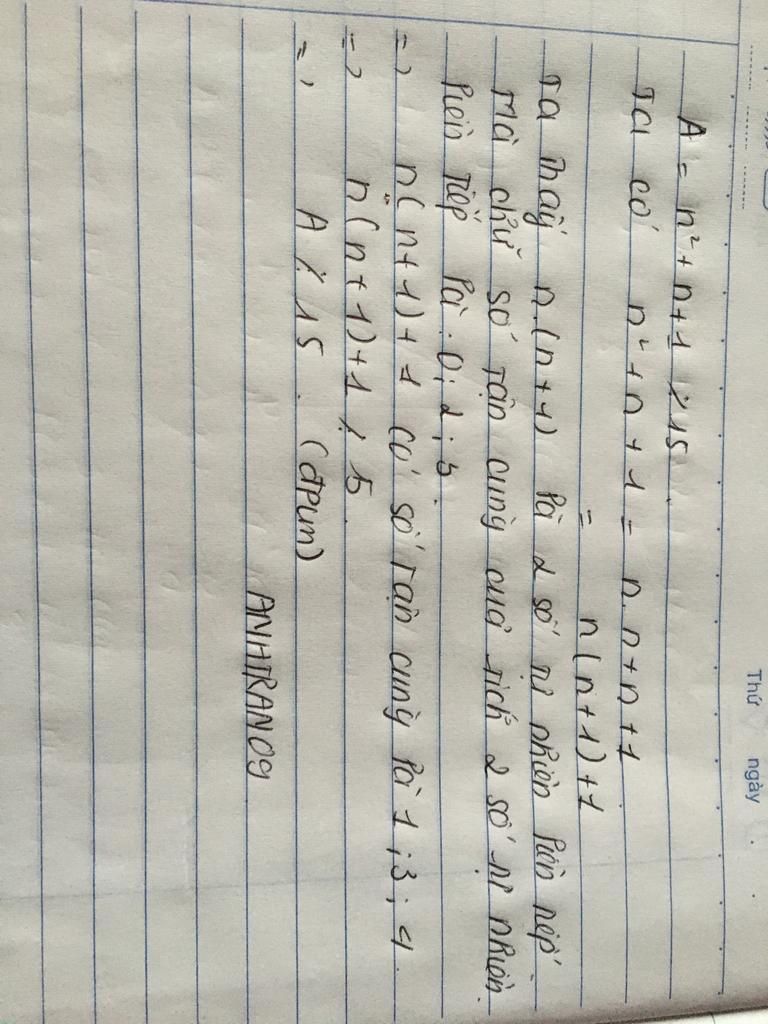 Thứ ngày
A = n² + n + 1 ⋮̸ 15.
Ta có n² + n + 1 = n.n + n + 1
= n(n+1)+1
Ta thấy n.(n+1) là 2 số tự nhiên liên tiếp
Mà chữ số tận cùng của tích 2 số tự nhiên
liên tiếp là: 0; 2; 3.
=> n(n+1)+1 có số tận cùng là 1; 3; 4.
=> n(n+1)+1 ⋮̸ 5.
=> A ⋮̸ 15. (đpcm)
ANHTRAN09